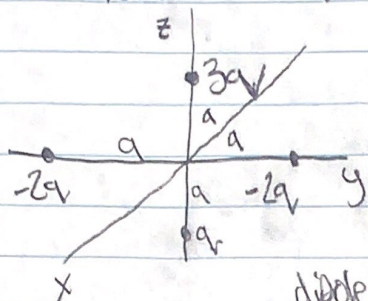 z
3q
a
a a
-2q a -2q y
q
x
dipole